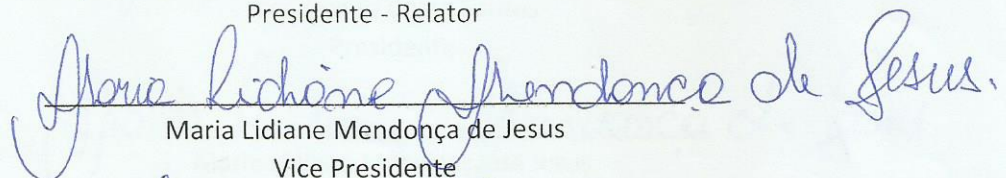 Presidente - Relator
Maria Lidiane Mendonça de Jesus.
Maria Lidiane Mendonça de Jesus
Vice Presidente